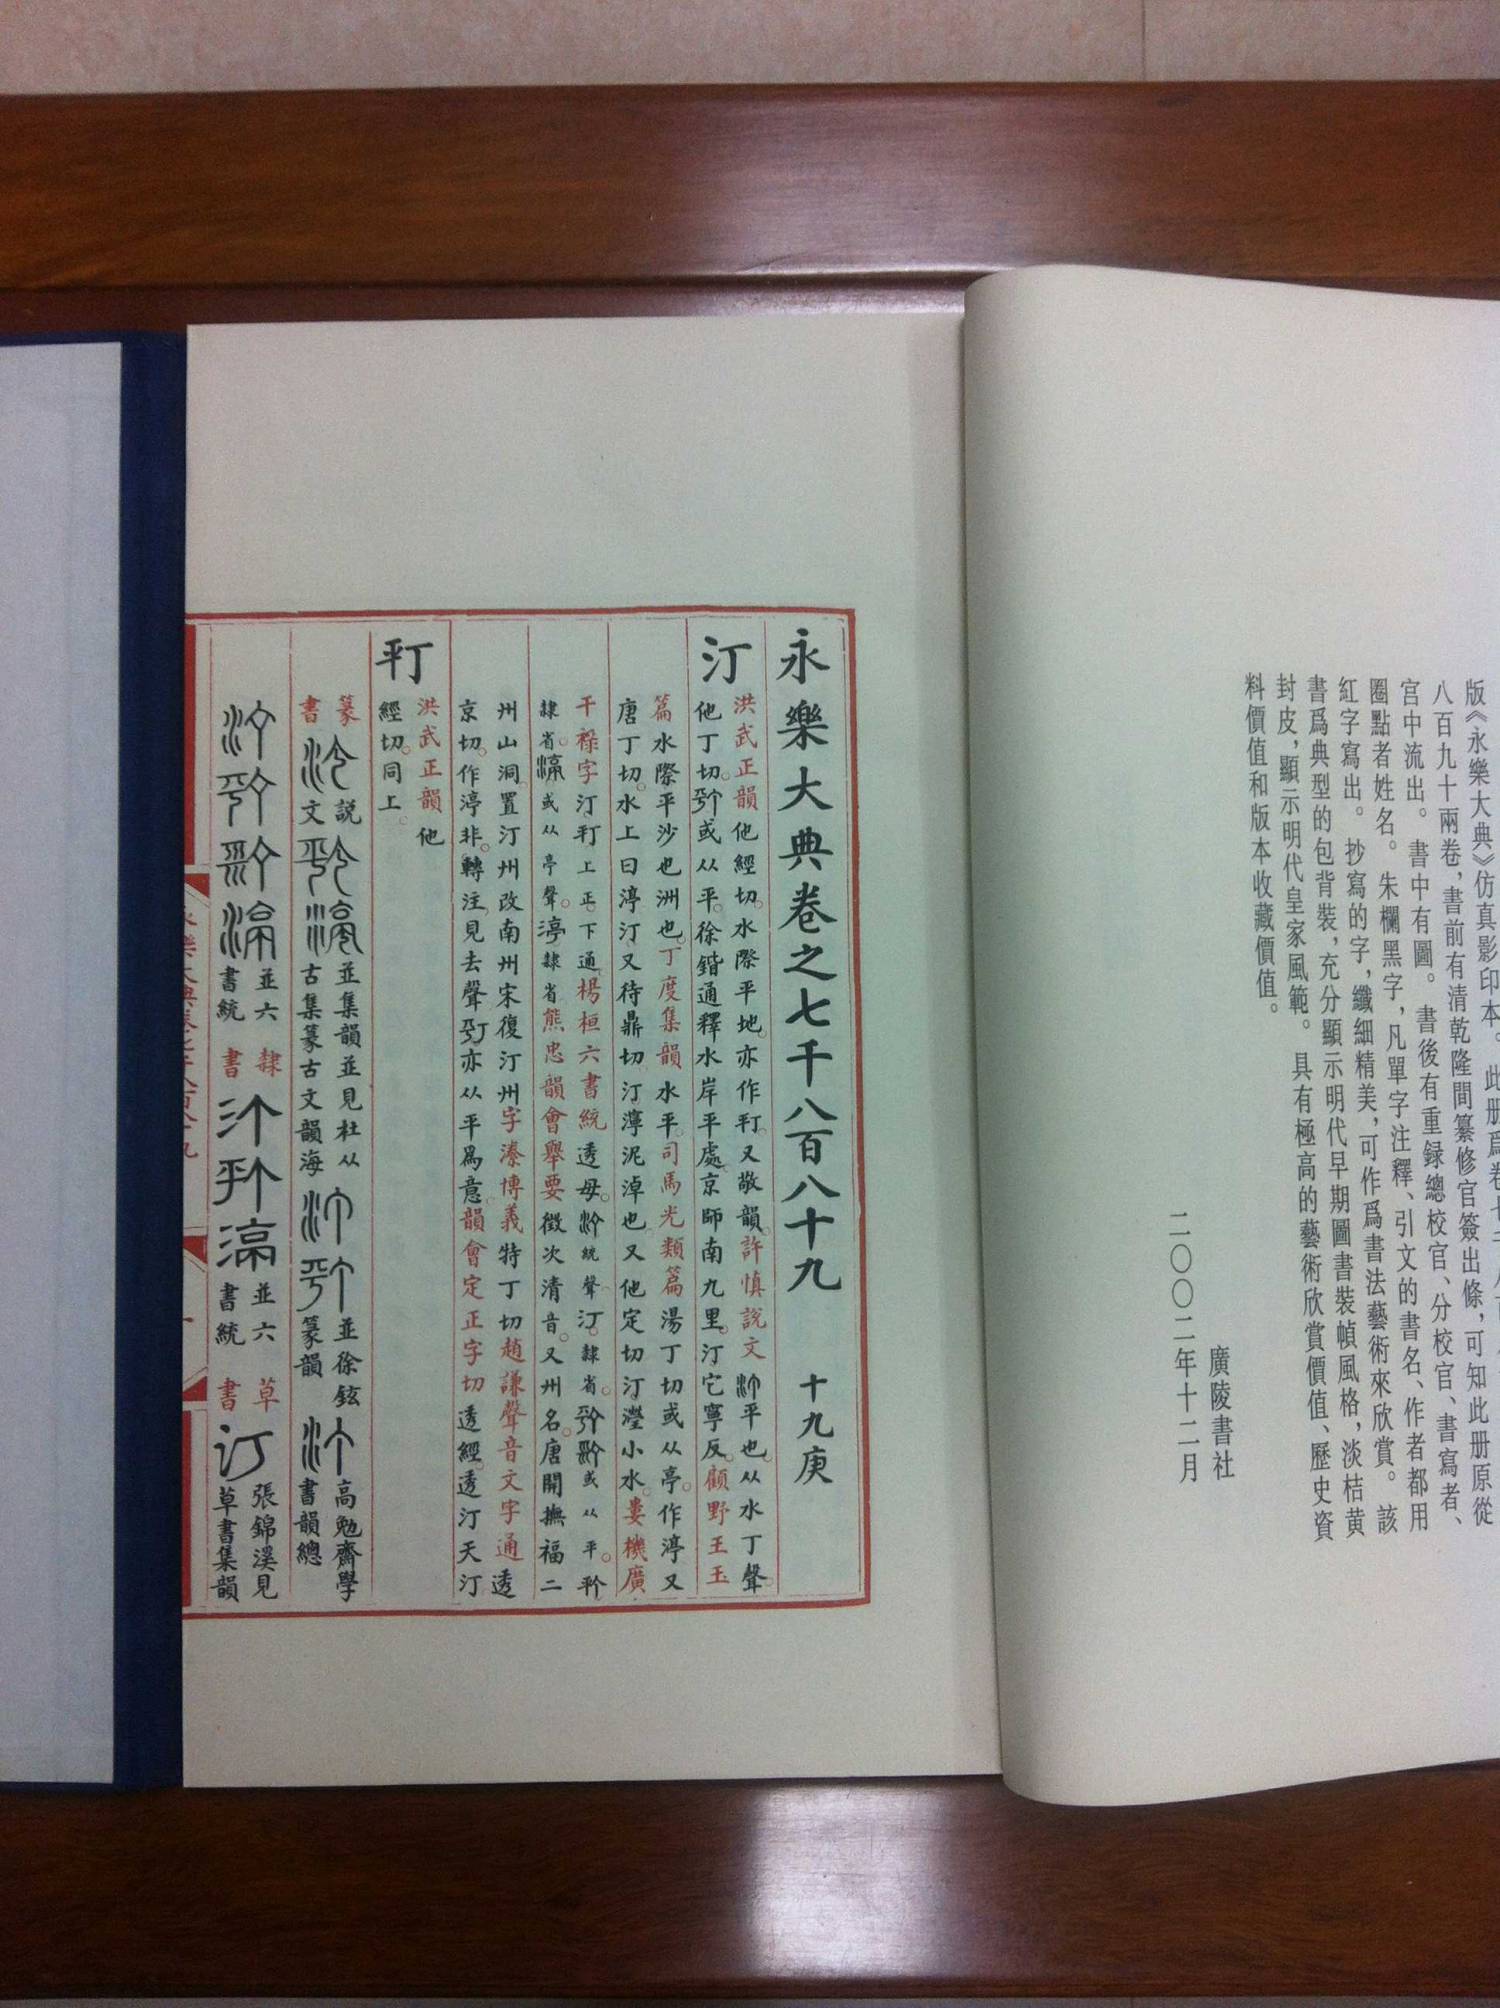 版《永樂大典》仿真影印本。此册爲卷七千八百
八百九十兩卷，書前有清乾隆間纂修官簽出條，可知此册原從
宫中流出。書中有圖。書後有重録總校官、分校官、書寫者、
圈點者姓名。朱欄黑字，凡單字注釋、引文的書名、作者都用
紅字寫出。抄寫的字，纖細精美，可作爲書法藝術來欣賞。該
書爲典型的包背裝，充分顯示明代早期圖書裝幀風格，淡桔黄
封皮，顯示明代皇家風範。具有極高的藝術欣賞價值、歷史資
料價值和版本收藏價值。
廣陵書社
二〇〇二年十二月
永樂大典卷之七千八百八十九 十九庚
汀
洪武正韻他經切。水際平地。亦作㲿。又敬韻。許慎説文平也。从水丁聲。
他丁切。或从平。徐鍇通釋水岸平處。京師南九里。汀它寧反。顧野王玉
篇水際平沙也洲也。丁度集韻水平。司馬光類篇湯丁切或从亭。作渟又
唐丁切。水上曰渟汀又待鼎切。汀濘泥淖也。又他定切汀瀅小水。婁機廣
干禄字汀㲿上正。下通楊桓六書統透母。統聲。汀。隸省。或从平。
隸省。或从亭聲。渟隸省熊忠韻會舉要徵次清音。又州名。唐開撫福二
州山洞。置汀州改南州宋復汀州字溙博義特丁切趙謙聲音文字通透
京切。作渟非。轉注見去聲亦从平爲意。韻會定正字切透經。透汀天汀
㲿
洪武正韻他
經切。同上。
篆書 説文 並集韻並見杜从古集篆古文韻海 並徐鉉篆韻 高勉齋學書韻總
並六書統 隸書 並六書統 草書 汀 張錦溪見草書集韻